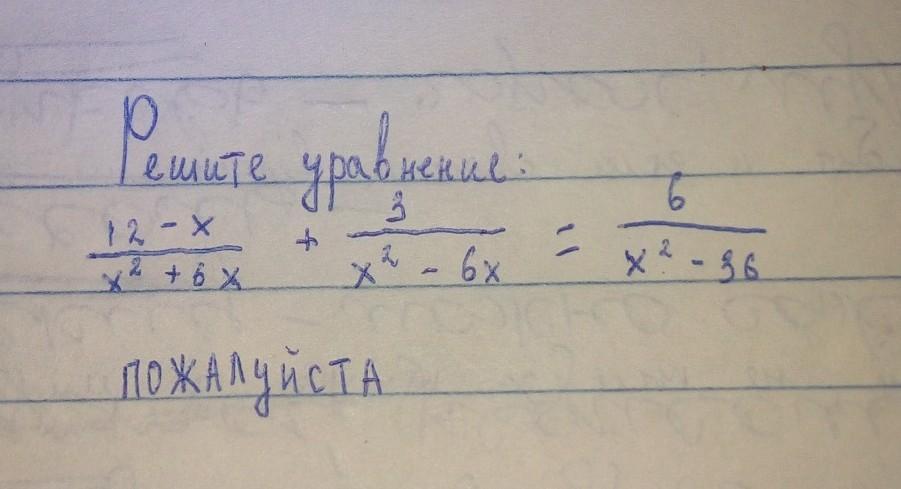 Решите уравнение:
12 - x / x² + 6x + 3 / x² - 6x = 6 / x² - 36
ПОЖАЛУЙСТА